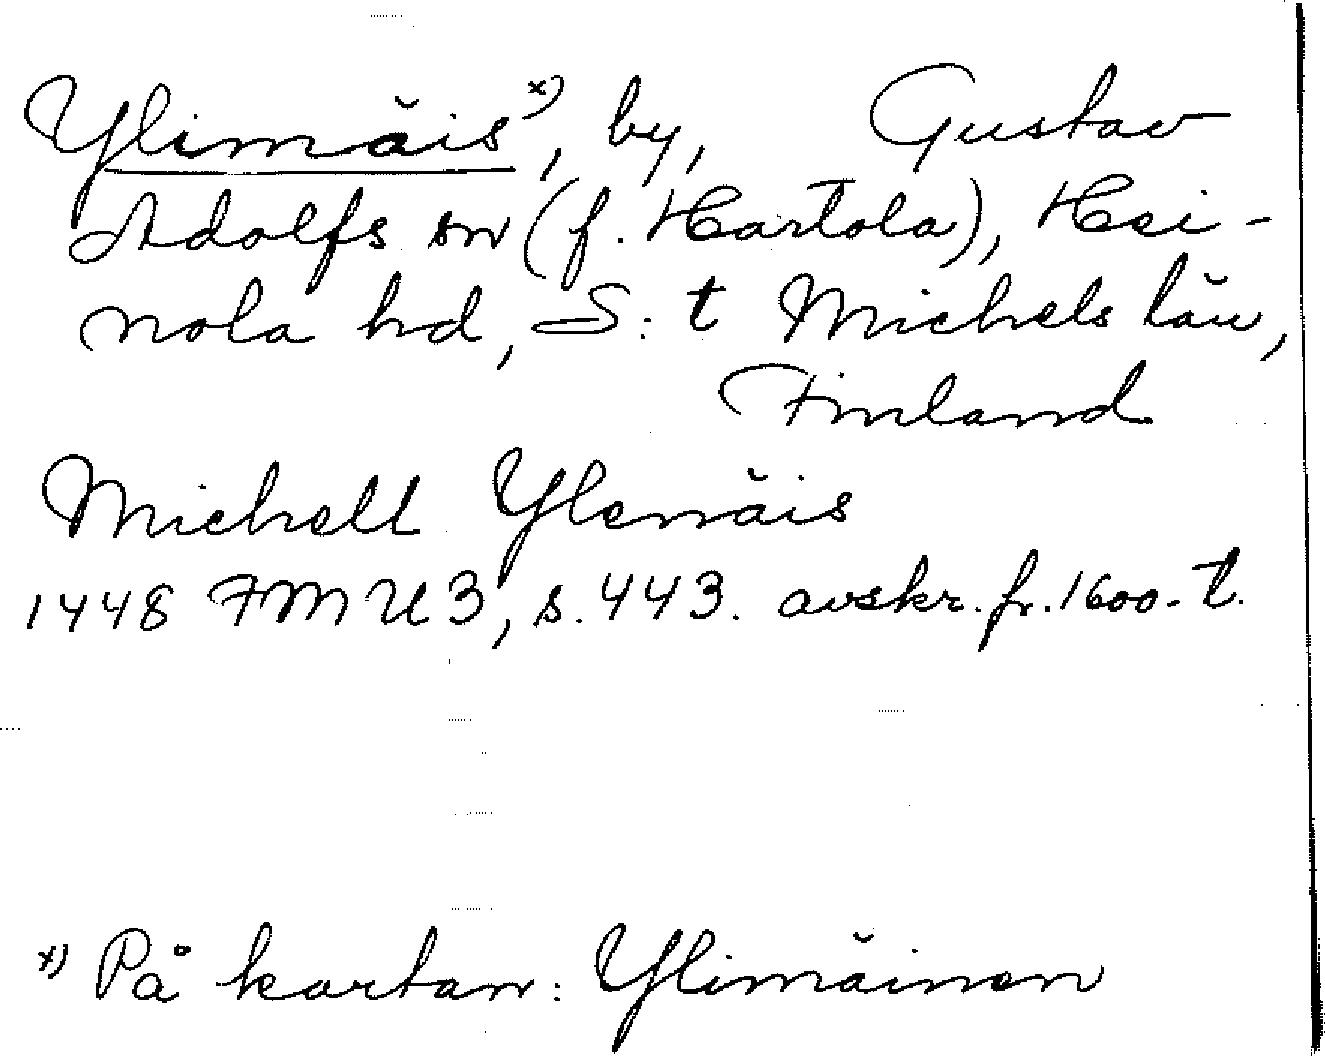 Ylimäis x), by, Gustav
Adolfs sn (f. Hartola), Hei-
nola hd, S:t Michels län,
Finland
Michell Ylemäis
1448 FMU 3, s. 443. avskr. fr. 1600-t.
x) På kartan: Ylimäinen